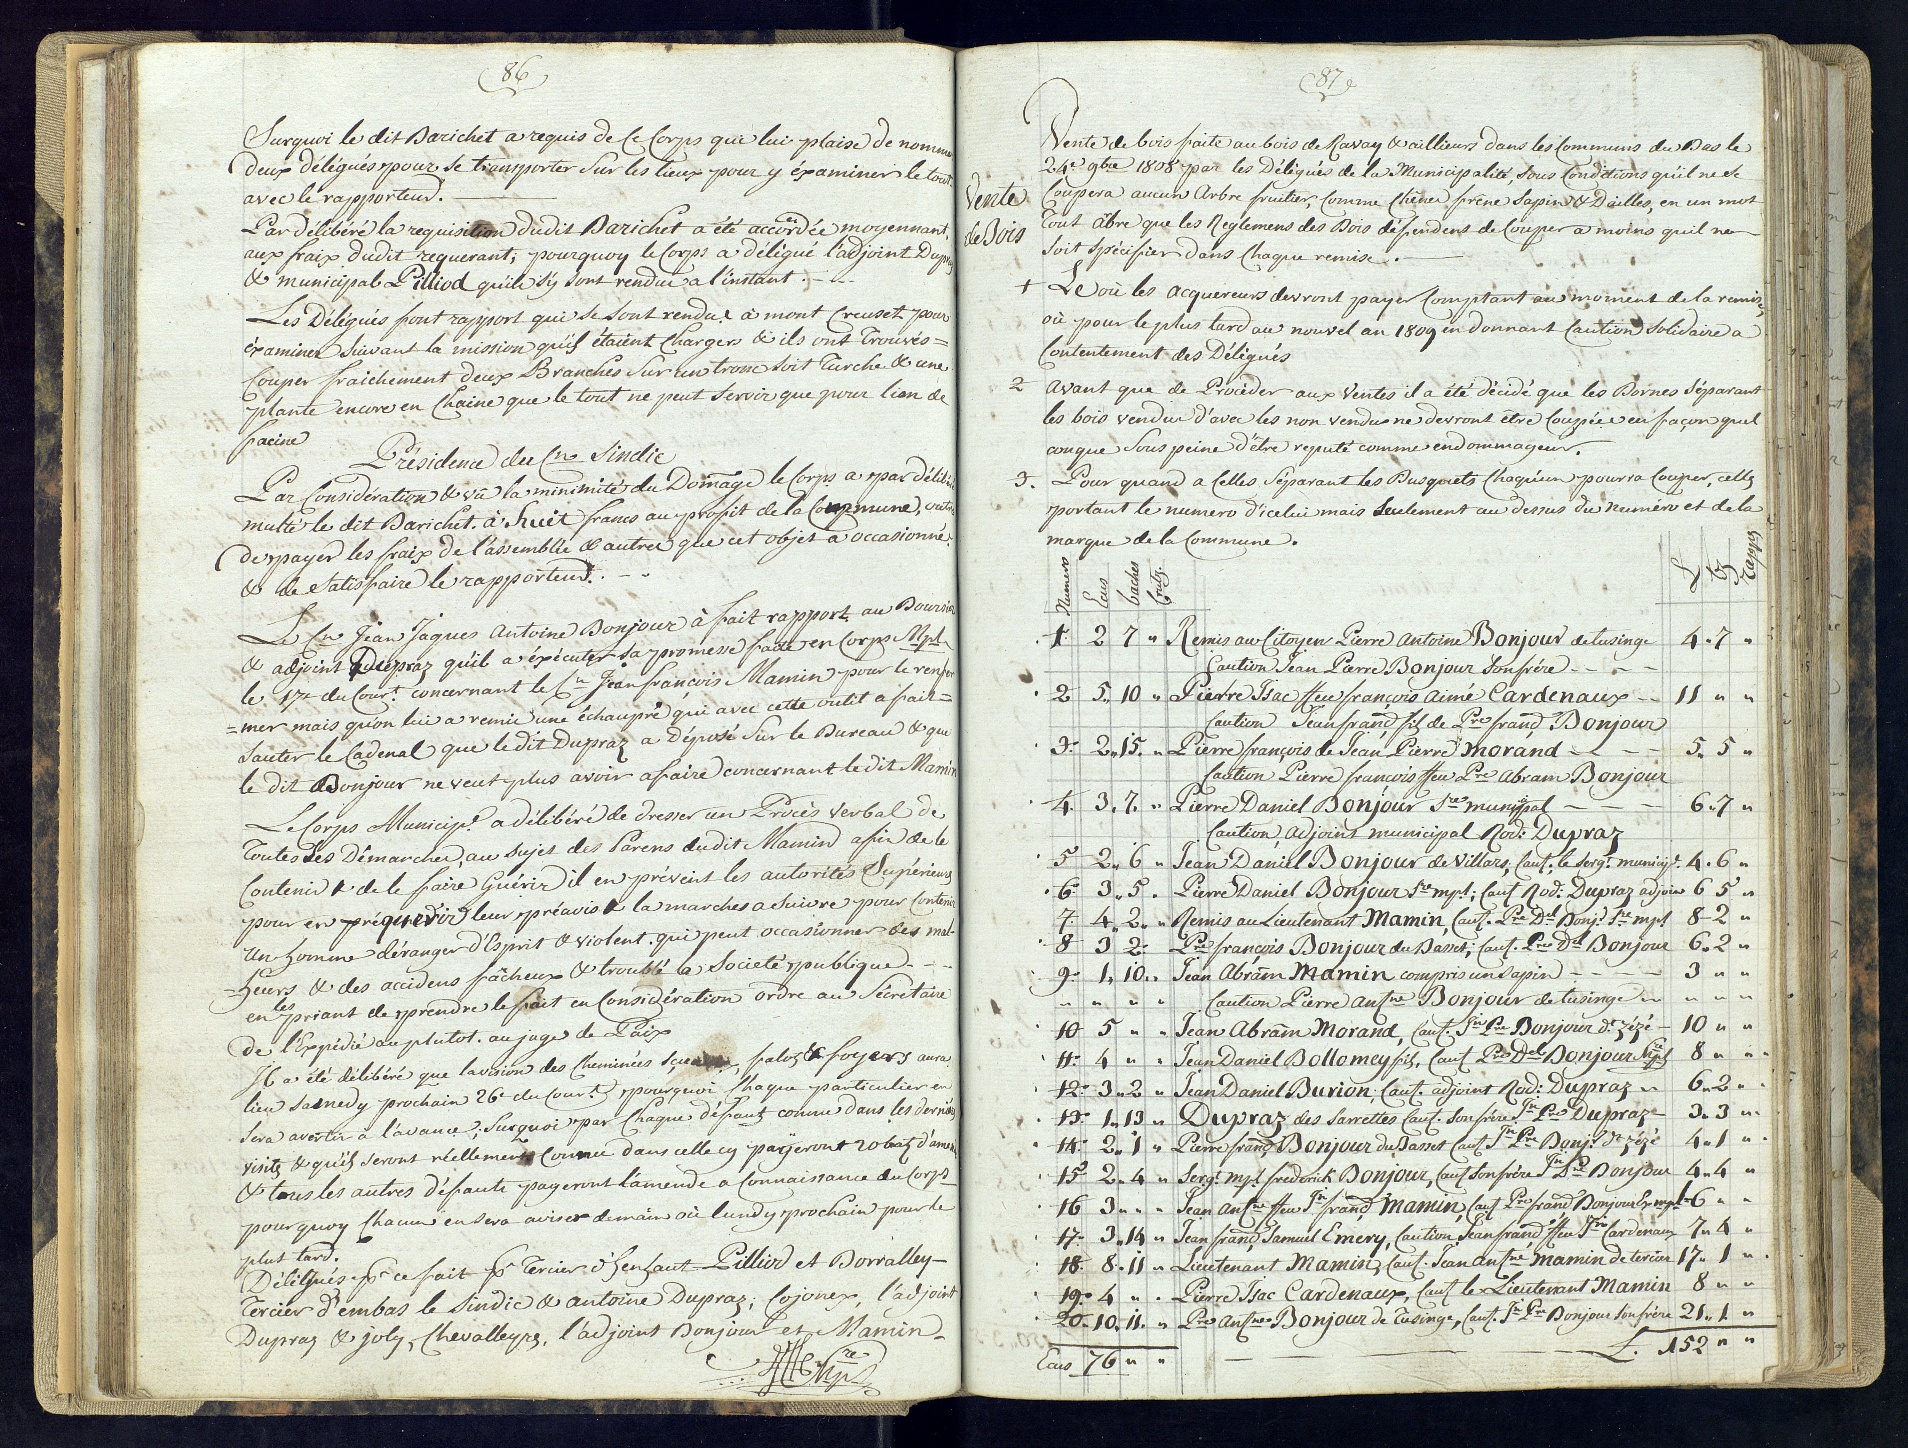 86
Surquoi le dit Barichet a requis de Ce Corps que lui plaise de nomme
deux délégués pour se transporter sur les lieux pour y éxaminer le tout
avec le rapporteur.
Par délibéré la requisition dudit Barichet a été accordée moyennant
aux fraix dudit requerant; pourquoy le Corps a délégué l'adjoint Dupraz
& municipal Pilliod qu'ils s'y sont rendus a l'instant.
Les Délégués font rapport qui se sont rendus à mont Creuset pour
éxaminer suivant la mission qu'ils étaient Chargers & ils ont Trouvés=
Couper fraichement deux Branches sur un tronc soit Turche & une
plante encore en Chaine que le tout ne peut servir que pour lien de
facine
Présidence du Cn Sindic
Par Considération & vû la minimité du Domage le Corps a par délibé
multé le dit Barichet à huit francs au profit de la Commune, outre
de payer les fraix de l'assemblée & autres que cet objet a occasionné
& de satisfaire le rapporteur.
Le Cn Jean Jaques Antoine Bonjour à fait rapport au Boursier
& adjoint Dupraz qu'il a éxécuter sa promesse faite en Corps Mpl
le 17e du Court concernant le Cn Jean françois Mamin pour le renfer
=mer mais qu'on lui a remis une échaupré qui avec cette outil a fait=
sauter le Cadenal que le dit Dupraz a Déposé sur le Bureau & que
le dit Bonjour ne veut plus avoir afaire concernant le dit Mamin
Le Corps Municipl a délibéré de dresser un Procès verbal de
Toutes ses Démarches, au sujet des Parens dudit Mamin afin de le
Contenir & de le faire Guérir il en prévient les autorités Supérieures
pour en préquerir leur préavis & la marches a suivre pour Contenir
un homme déranger d'Esprit & violent qui peut occasionner des mal-
-heurs & des accidens fâcheux & troublé la Societé publique
en les priant de prendre le fait en Considération ordre au Sécretaire
de l'Expédié au plutot. au juge de Paix
Il a été délibéré que la vision des Cheminées, palots & foyers aura
lieu samedy prochain 26e du Court pourquoi Chaque particulier en
sera avertir a l'avance, Surquoi par Chaque défauts connu dans les dernières
visite & qu'ils seront réellement Connu dans celle cy payeront 20 batz d'amende
& tous les autres défauts payeront l'amende a Connaissance du Corps
pourquoy Chacun en sera aviser demain où lundy prochain pour le
plus tard.
Délégués pr ce fait pr Tercier d'henhaut Pilliod et Dovalley
Tercier d'embas le Sindic & antoine Dupraz; Cojonex, l'adjoint
Dupraz & joly, Chevalleyre, l'adjoint Bonjour et Mamin
87
Vente
de Bois
Vente de bois faite au bois de Ravay & aillieurs dans les Communs du Bas le
24e 9bre 1808 par les Délégués de la Municipalité, sous Conditions qu'il ne se
Coupera aucun Arbre fruitier, Comme Chêne, frêne Sapin & Dailles, en un mot
Tout âbre que les Reglemens des Bois défendent de Couper a moins qu'il ne
soit spécifier dans Chaque remise.
1 Le où les acquereurs devront payer Comptant au moment de la remise,
où pour le plus tard au nouvel an 1809 en donnant Caution Solidaire a
Contentement des Délégués
2 avant que de Proceder aux Ventes il a été décidé que les Bornes séparant
les bois vendus d'avec les non vendus ne devront être Coupées en façon quel
conque sous peine d'être reputé comme endommageur.
3. Pour quand a Celles séparant les Busquets Chaqu'un pourra Couper, celles
portant le numero d'icelui mais seulement au dessus du numéro et de la
marque de la Commune.
Numero Ecus baches Crutz. L Bz Rapps
1 2 7 " Remis au Citoyen Pierre Antoine Bonjour de tusinge 4 " 7 "
Caution Jean Pierre Bonjour son frère
2 5 " 10 " Pierre Isac ffeu françois aimé Cardenaux 11 " "
Caution Jean franç fils de Pre franç Bonjour
3 2 " 15 " Pierre françois de Jean Pierre morand 5 " 5 "
Caution Pierre françois ffeu Pre Abram Bonjour
4 3 " 7 " Pierre Daniel Bonjour Sre municipal 6 " 7 "
Caution, adjoint municipal Rod: Dupraz
5 2 " 6 " Jean Daniel Bonjour de Villars, Caut. le sergt municipl 4 " 6 "
6 3 " 5 " Pierre Daniel Bonjour Sre mpl; Caut Rod: Dupraz adjoin 6 5 "
7 4 " 2 " Remis au Lieutenant Mamin, Caut. Pre Dl Bonj. Sre mpl 8 " 2 "
8 3 2 Pre françois Bonjour du Basset; Caut. Pre Dl Bonjour 6 " 2 "
9 1 " 10 " Jean Abram Mamin compris un sapin 3 " "
" " " " Caution Pierre antne Bonjour de tusinge " " " "
10 5 " " Jean Abram Morand, Caut. Jn Pre Bonjour dt zézé 10 " "
11 4 " " Jean Daniel Bollomey fils, Caut Pre Del Bonjour Sre Mpl 8 " "
12 3 " 2 " Jean Daniel Burion, Caut. adjoint Rod: Dupraz 6 " 2 "
13 1 " 13 " Dupraz des Sarrettes Caut. son frère Jn Pre Dupraz 3 " 3 "
14 2 " 1 " Pierre franç Bonjour du Basset Caut Jn Pre Bonj. dt zézé 4 " 1 "
15 2 " 4 " Sergt mpl frederick Bonjour, Caut son frère Bonjour 4 " 4 "
16 3 " " Jean antne ffeu Jn franç Mamin, Caut Pre franç Bonjour Ex mpl 6 " "
17 3 " 14 " Jean franç Samuel Emery, Caution Jean franç ffeu Jn Cardenaux 7 " 4 "
18 8 " 11 " Lieutenant Mamin, Caut. Jean antne Mamin de tercier 17 " 1 "
19 4 " " Pierre Isac Cardenaux, Caut le Lieutenant Mamin 8 " "
20 10 " 11 " Pre antne Bonjour de Tusinge, Caut. Jn Pre Bonjour son frère 21 " 1 "
Ecus 76 " " L. 152 " "